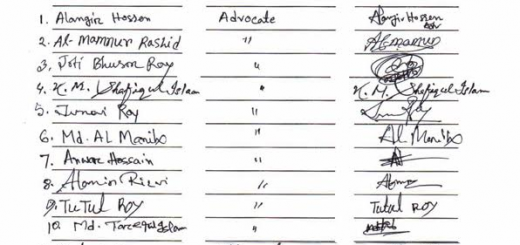 1. Alamgir Hossen Advocate Alamgir Hossen
2. Al- Mammur Rashid " Al mamur
3. Joti Bhuson Roy "
4. K. M. Shafiqul Islam " K. M. Shafiqul Islam
5. Roy " Roy
6. Md. AL Manibo " Al Manibo
7. Anwar Hossain "
8. Alamin Rizvi "
9. TuTul Roy " Tutul Roy
10. Md. Tareequl Islam "